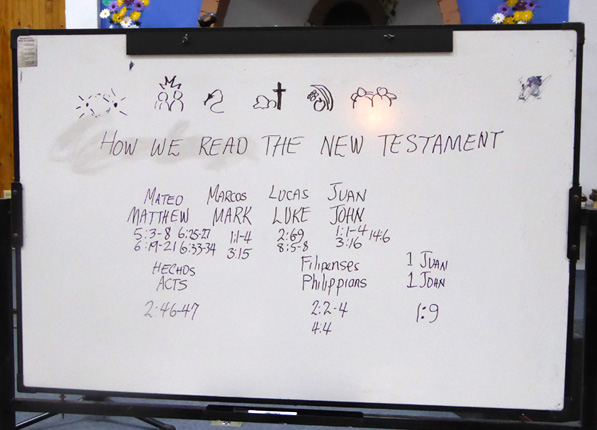 HOW WE READ THE NEW TESTAMENT
MATEO MARCOS LUCAS JUAN
MATTHEW MARK LUKE JOHN
5:3-8 6:25-27 1:1-4 2:69 1:1-4 14:6
6:19-21 6:33-34 3:15 8:5-8 3:16
HECHOS Filipenses 1 JUAN
ACTS Philippians 1 JOHN
2:46-47 2:2-4 1:9
4:4